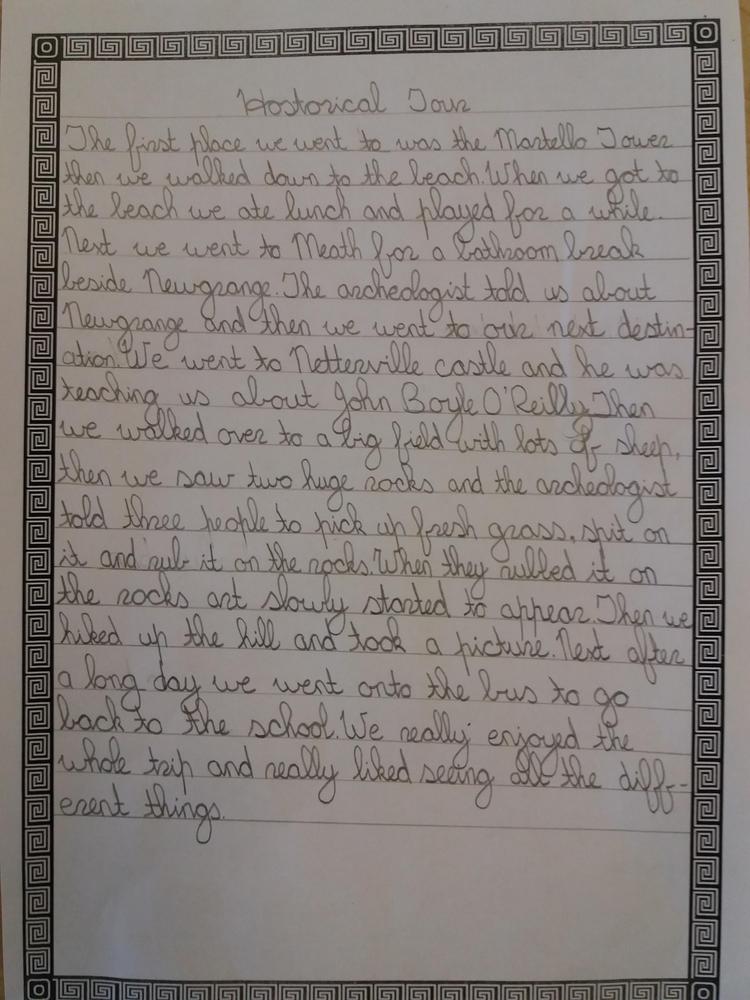 Hostorical Tour
The first place we went to was the Martello Tower
then we walked down to the beach. When we got to
the beach we ate lunch and played for a while.
Next we went to Meath for a bathroom break
beside Newgrange. The archeologist told us about
Newgrange and then we went to our next destin-
ation. We went to Netterville castle and he was
teaching us about John Boyle O'Reilly. Then
we walked over to a big field with lots of sheep,
then we saw two huge rocks and the archeologist
told three people to pick up fresh grass, spit on
it and rub it on the rocks. When they rubbed it on
the rocks art slowly started to appear. Then we
hiked up the hill and took a picture. Next after
a long day we went onto the bus to go
back to the school. We really enjoyed the
whole trip and really liked seeing all the diff-
erent things.